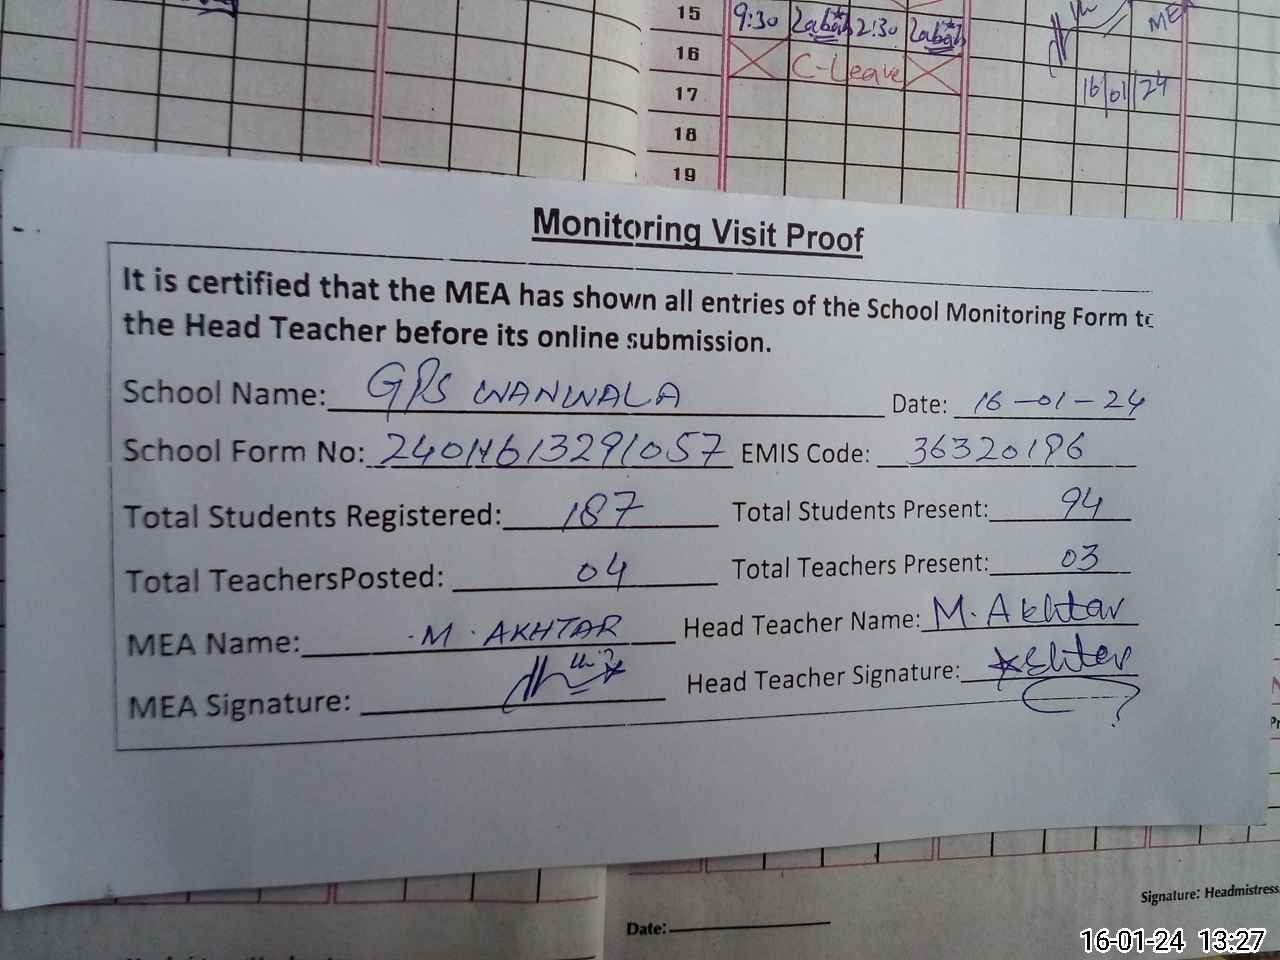 15 9:30 Labah 2:30 Labah
16 C-Leave
17
18
19
MEA
16/01/24
Monitoring Visit Proof
It is certified that the MEA has shown all entries of the School Monitoring Form to
the Head Teacher before its online submission.
School Name: GPS WANWALA Date: 16-01-24
School Form No: EMIS Code: 36320196
Total Students Registered: 187 Total Students Present: 94
Total TeachersPosted: 04 Total Teachers Present: 03
MEA Name: M. AKHTAR Head Teacher Name: M. Akhtar
MEA Signature: Head Teacher Signature: Akhtar
Signature: Headmistress
Date:
16-01-24 13:27